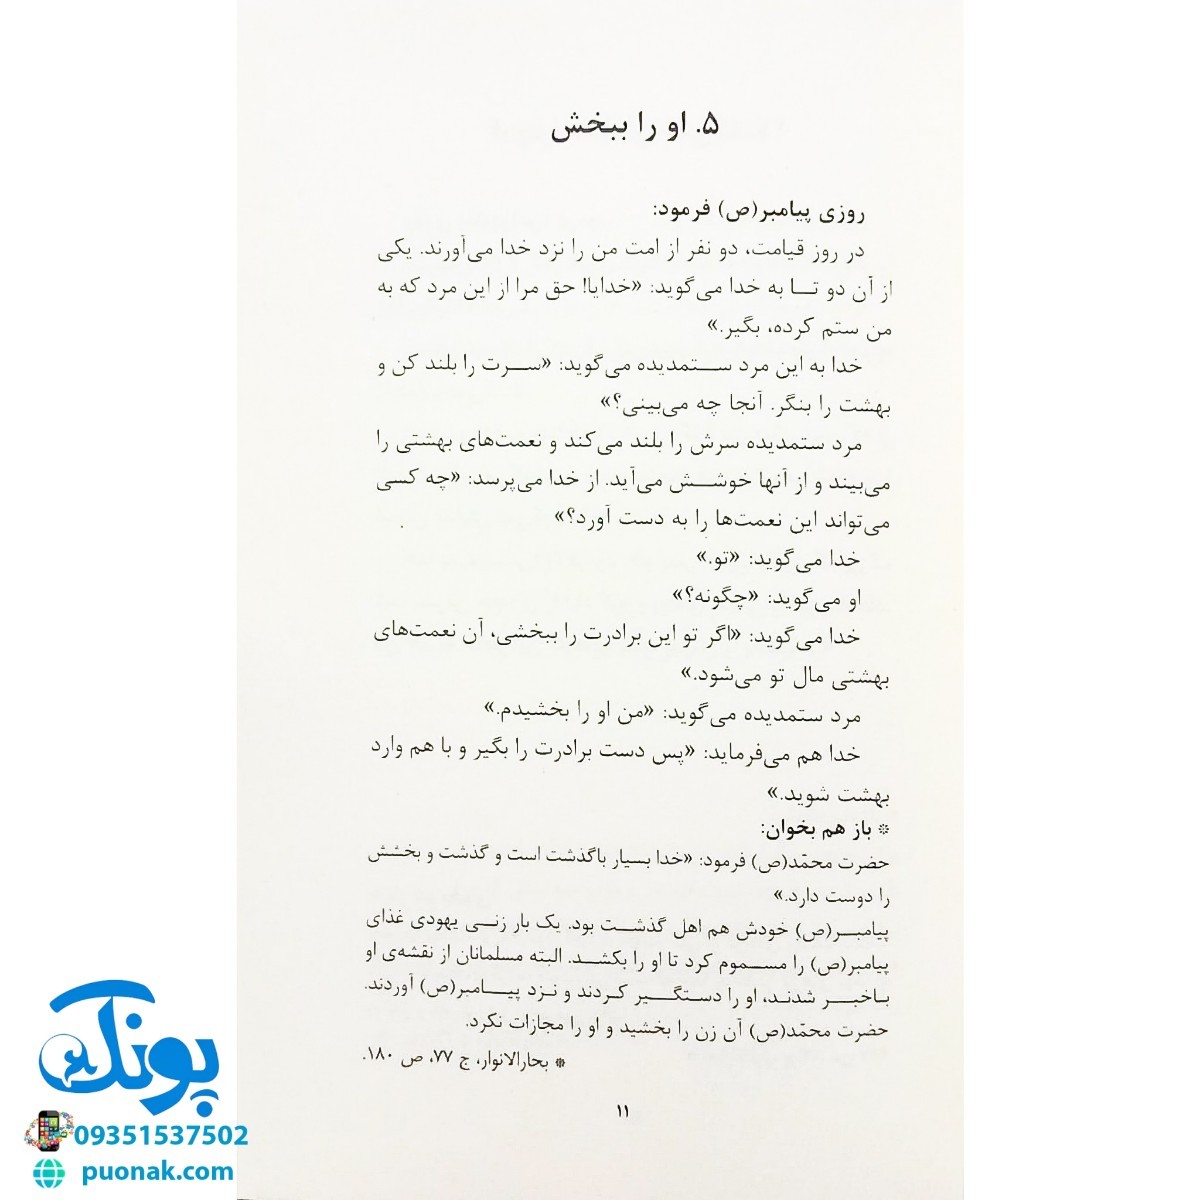 ۵. او را ببخش
روزی پیامبر(ص) فرمود:
در روز قیامت، دو نفر از امت من را نزد خدا می‌آورند. یکی
از آن دو تا به خدا می‌گوید: «خدایا! حق مرا از این مرد که به
من ستم کرده، بگیر.»
خدا به این مرد ستمدیده می‌گوید: «سرت را بلند کن و
بهشت را بنگر. آنجا چه می‌بینی؟»
مرد ستمدیده سرش را بلند می‌کند و نعمت‌های بهشتی را
می‌بیند و از آنها خوشش می‌آید. از خدا می‌پرسد: «چه کسی
می‌تواند این نعمت‌ها را به دست آورد؟»
خدا می‌گوید: «تو.»
او می‌گوید: «چگونه؟»
خدا می‌گوید: «اگر تو این برادرت را ببخشی، آن نعمت‌های
بهشتی مال تو می‌شود.»
مرد ستمدیده می‌گوید: «من او را بخشیدم.»
خدا هم می‌فرماید: «پس دست برادرت را بگیر و با هم وارد
بهشت شوید.»
* باز هم بخوان:
حضرت محمّد(ص) فرمود: «خدا بسیار باگذشت است و گذشت و بخشش
را دوست دارد.»
پیامبر(ص) خودش هم اهل گذشت بود. یک بار زنی یهودی غذای
پیامبر(ص) را مسموم کرد تا او را بکشد. البته مسلمانان از نقشه‌ی او
باخبر شدند، او را دستگیر کردند و نزد پیامبر(ص) آوردند.
حضرت محمّد(ص) آن زن را بخشید و او را مجازات نکرد.
* بحارالانوار، ج ۷۷، ص ۱۸۰.
۱۱
پونک
09351537502
puonak.com